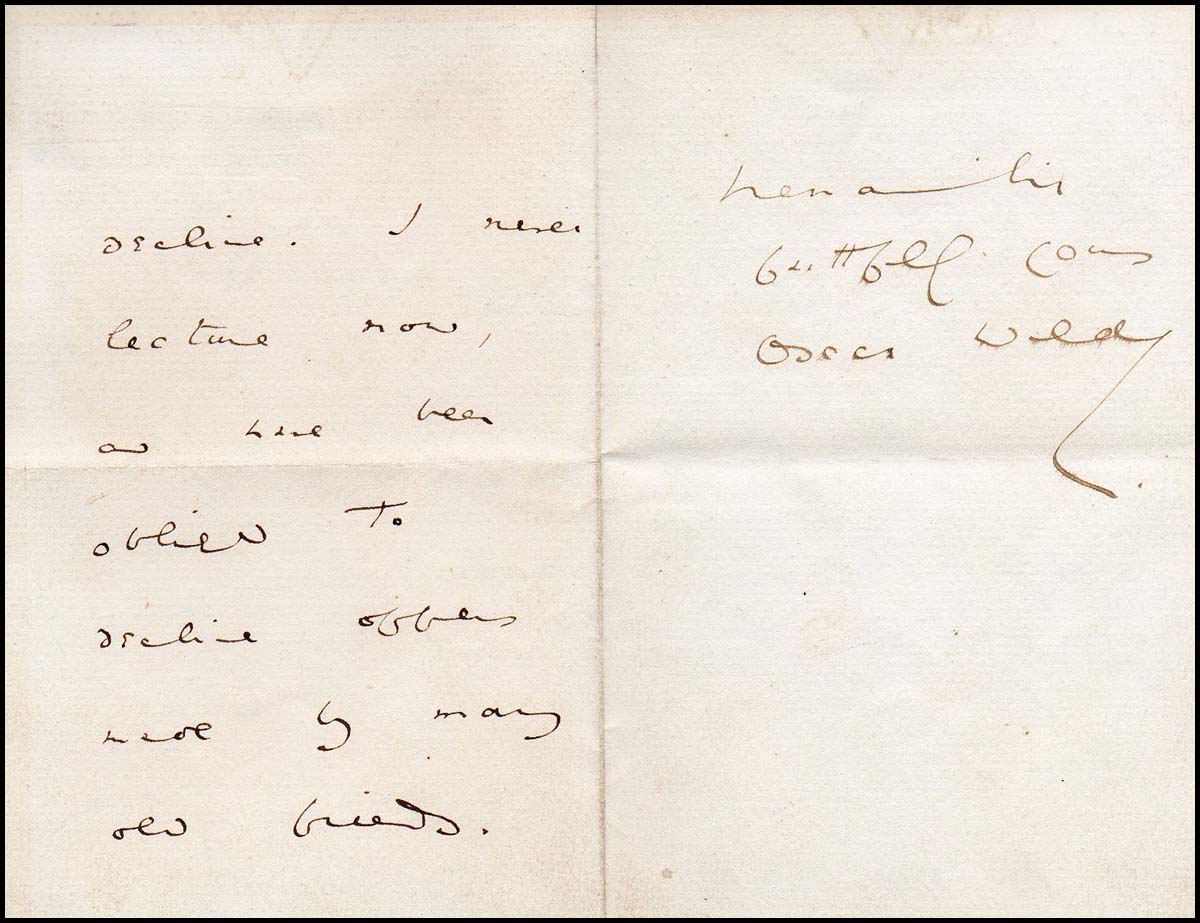 decline. I never
lecture now,
and have been
obliged to
decline offers
made by many
old friends.
remain
faithfully yours
Oscar Wilde